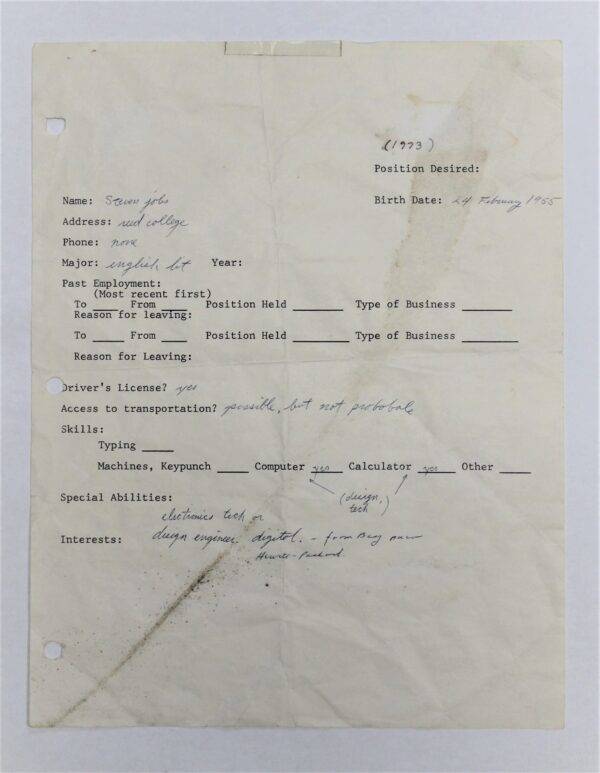 (1973)
Position Desired:
Name: Steven jobs Birth Date: 24 February 1955
Address: reed college
Phone: none
Major: english lit Year:
Past Employment:
(Most recent first)
To ____ From ____ Position Held ____ Type of Business ____
Reason for leaving:
To ____ From ____ Position Held ____ Type of Business ____
Reason for Leaving:
Driver's License? yes
Access to transportation? possible, but not probable
Skills:
Typing ____
Machines, Keypunch ____ Computer yes Calculator yes Other ____
(design, tech)
Special Abilities:
electronics tech or
Interests: design engineer. digital. - from Bay near
Hewitt-Packard